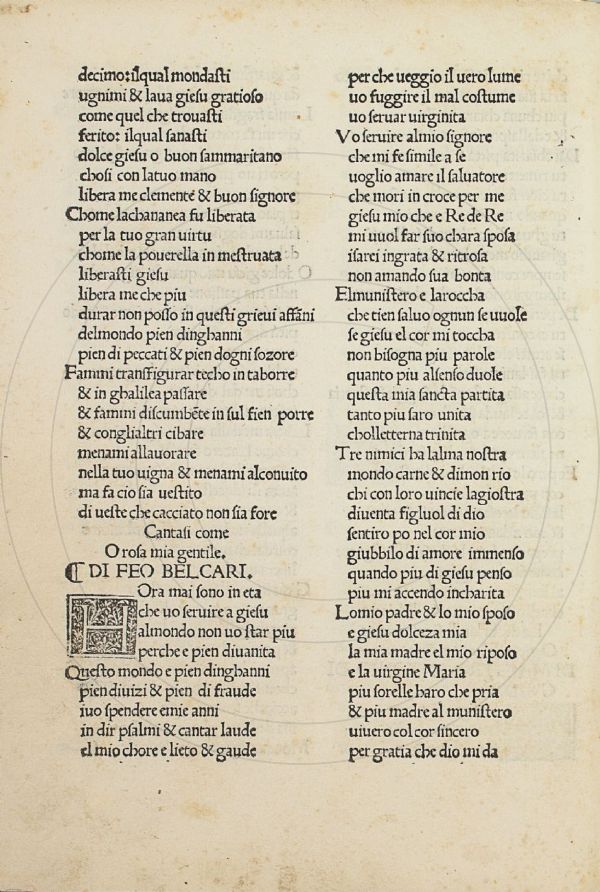 decimo: ilqual mondasti
ugnimi & laua giesu gratioso
come quel che trouasti
ferito: ilqual sanasti
dolce giesu o buon sammaritano
chosi con latuo mano
libera me clemente & buon signore
Chome lachananea fu liberata
per la tuo gran uirtu
chome la pouerella in mestruata
liberasti giesu
libera me che piu
durar non posso in questi grieui affãni
delmondo pien dinghanni
pien di peccati & pien dogni sozore
Fammi transfigurar techo in taborre
& in ghalilea passare
& fammi discumbẽte in sul fien porre
& conglialtri cibare
menami allauorare
nella tuo uigna & menami alconuito
ma fa cio sia uestito
di ueste che cacciato non sia fore
Cantasi come
O rosa mia gentile.
⸿ DI FEO BELCARI.
HOra mai sono in eta
che uo seruire a giesu
almondo non uo star piu
perche e pien diuanita
Questo mondo e pien dinghanni
pien diuizi & pien di fraude
iuo spendere emie anni
in dir psalmi & cantar laude
el mio chore e lieto & gaude
per che ueggio il uero lume
uo fuggire il mal costume
uo seruar uirginita
Vo seruire almio signore
che mi fe simile a se
uoglio amare il saluatore
che mori in croce per me
giesu mio che e Re de Re
mi uuol far suo chara sposa
isarei ingrata & ritrosa
non amando sua bonta
Elmunistero e laroccha
che tien saluo ognun se uuole
se giesu el cor mi toccha
non bisogna piu parole
quanto piu alsenso duole
questa mia sancta partita
tanto piu saro unita
cholletterna trinita
Tre nimici ha lalma nostra
mondo carne & dimon rio
chi con loro uincie lagiostra
diuenta figluol di dio
sentiro po nel cor mio
giubbilo di amore immenso
quando piu di giesu penso
piu mi accendo incharita
Lomio padre & lo mio sposo
e giesu dolceza mia
la mia madre el mio riposo
e la uirgine Maria
piu sorelle haro che pria
& piu madre al munistero
uiuero col cor sincero
per gratia che dio mi da